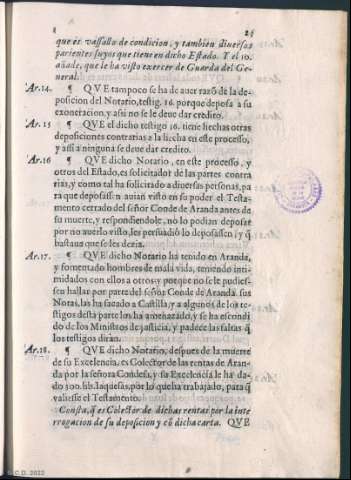 1 24
que es vassallo de condicion, y tambien diuersos
parientes suyos que tiene en dicho Estado. Y el 10.
añade, que le ha visto exercer de Guarda del Ge-
neral.
Ar. 14. ¶ QVE tampoco se ha de auer razõ de la de-
posicion del Notario, testig. 16. porque deposa à su
exoneracion, y assi no se le deue dar credito.
Ar. 15 ¶ QVE el dicho testigo 16. tiene hechas otras
deposiciones contrarias a la hecha en este processo,
y assi a ninguna se deue dar credito.
Ar. 16 ¶ QVE dicho Notario, en este processo, y
otros del Estado, es solicitador de las partes contra
rias, y como tal ha solicitado a diuersas personas, pa
ra que deposassen auian visto en su poder el Testa-
mento cerrado del señor Conde de Aranda antes de
su muerte, y respondiendole, no lo podian deposar
por no auerlo visto, les persuadiò lo deposassen, y q̃
bastaua que se les dezia.
Ar. 17. ¶ QVE dicho Notario ha tenido en Aranda,
y fomentado hombres de mala vida, teniendo inti-
midados con ellos a otros: y porque no se le pudies-
sen hallar por parte del señor Conde de Aranda sus
Notas, las ha sacado a Castilla, y a algunos de los tes-
tigos desta parte los ha amenazado, y se ha escondi
do de los Ministros de justicia, y padece las faltas q̃
los testigos diràn.
Ar. 18. ¶ QVE dicho Notario, despues de la muerte
de su Excelencia, es Colector de las rentas de Aran-
da por la señora Condesa, y su Excelencia le ha da-
do 300. lib. Iaquesas, por lo que ha trabajado, para q̃
valiesse el Testamento.
Consta, q̃ es Colector de dichas rentas por la inte
rrogacion de su deposicion y cõ dicha carta. QVE
C.D. 2022